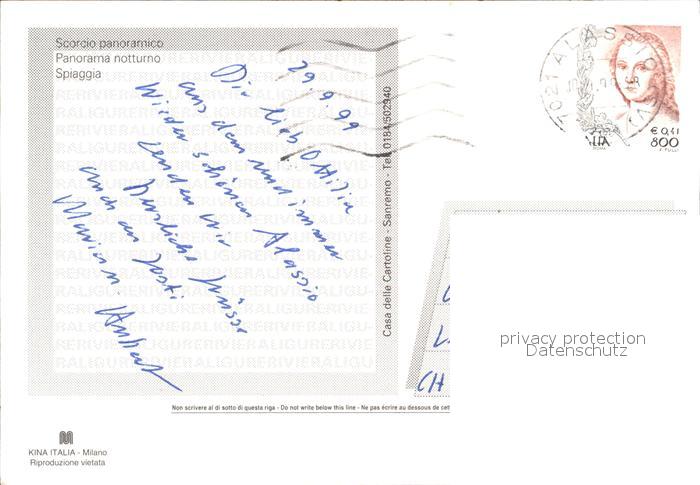 Scorcio panoramico
Panorama notturno
Spiaggia
29.9.99
Die lieb Ottilia
aus dem und immer
Wieder schönen Alassio
senden wir
herzliche Grüsse
auch an Josti
Maria u. Hubert
Casa delle Cartoline - Sanremo - Tel. 0184/502940
17021 ALASSIO
€ 0,41
800
ITALIA
ROMA
CH
privacy protection
Datenschutz
Non scrivere al di sotto di questa riga - Do not write below this line - Ne pas écrire au dessous de cet
KINA ITALIA - Milano
Riproduzione vietata